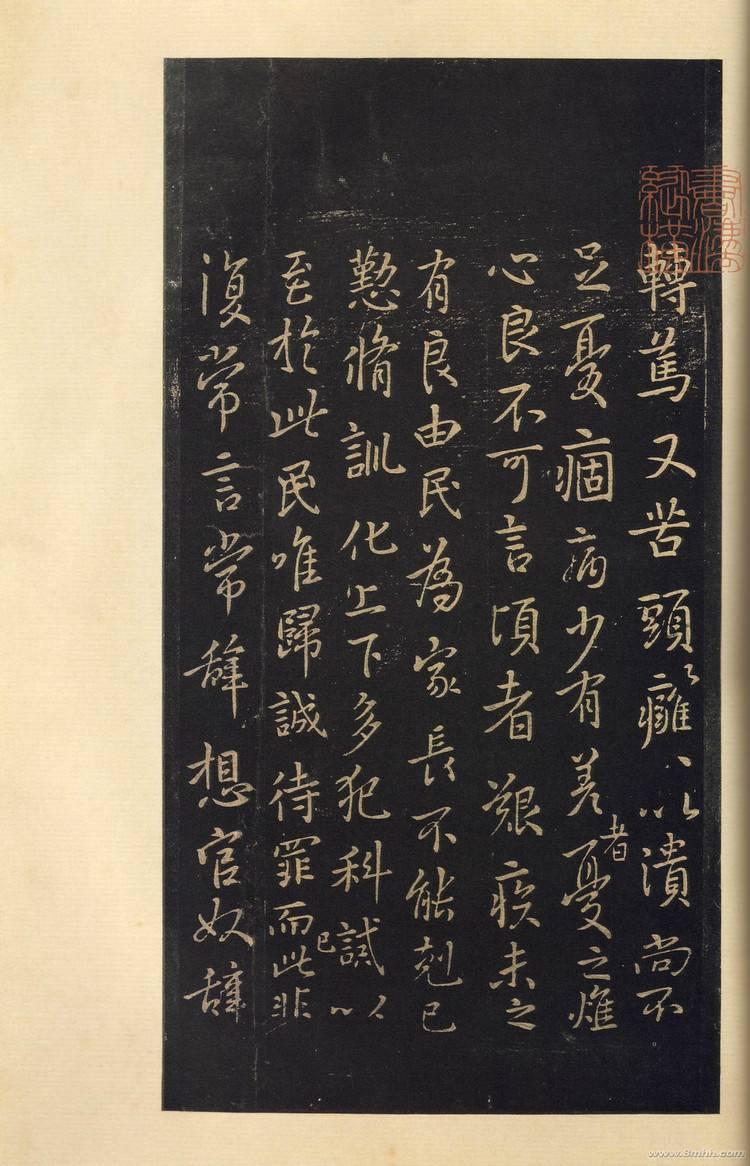 轉篤又苦頭〻癰〻以潰尚不
足憂痼病少有差者憂之燋
心良不可言頃者艱疾未之
有良由民為家長不能剋己
懃脩訓化上下多犯科誡以
至於此民唯歸誠待罪而已此非
復常言常辭想官奴辭
www.8mhh.com